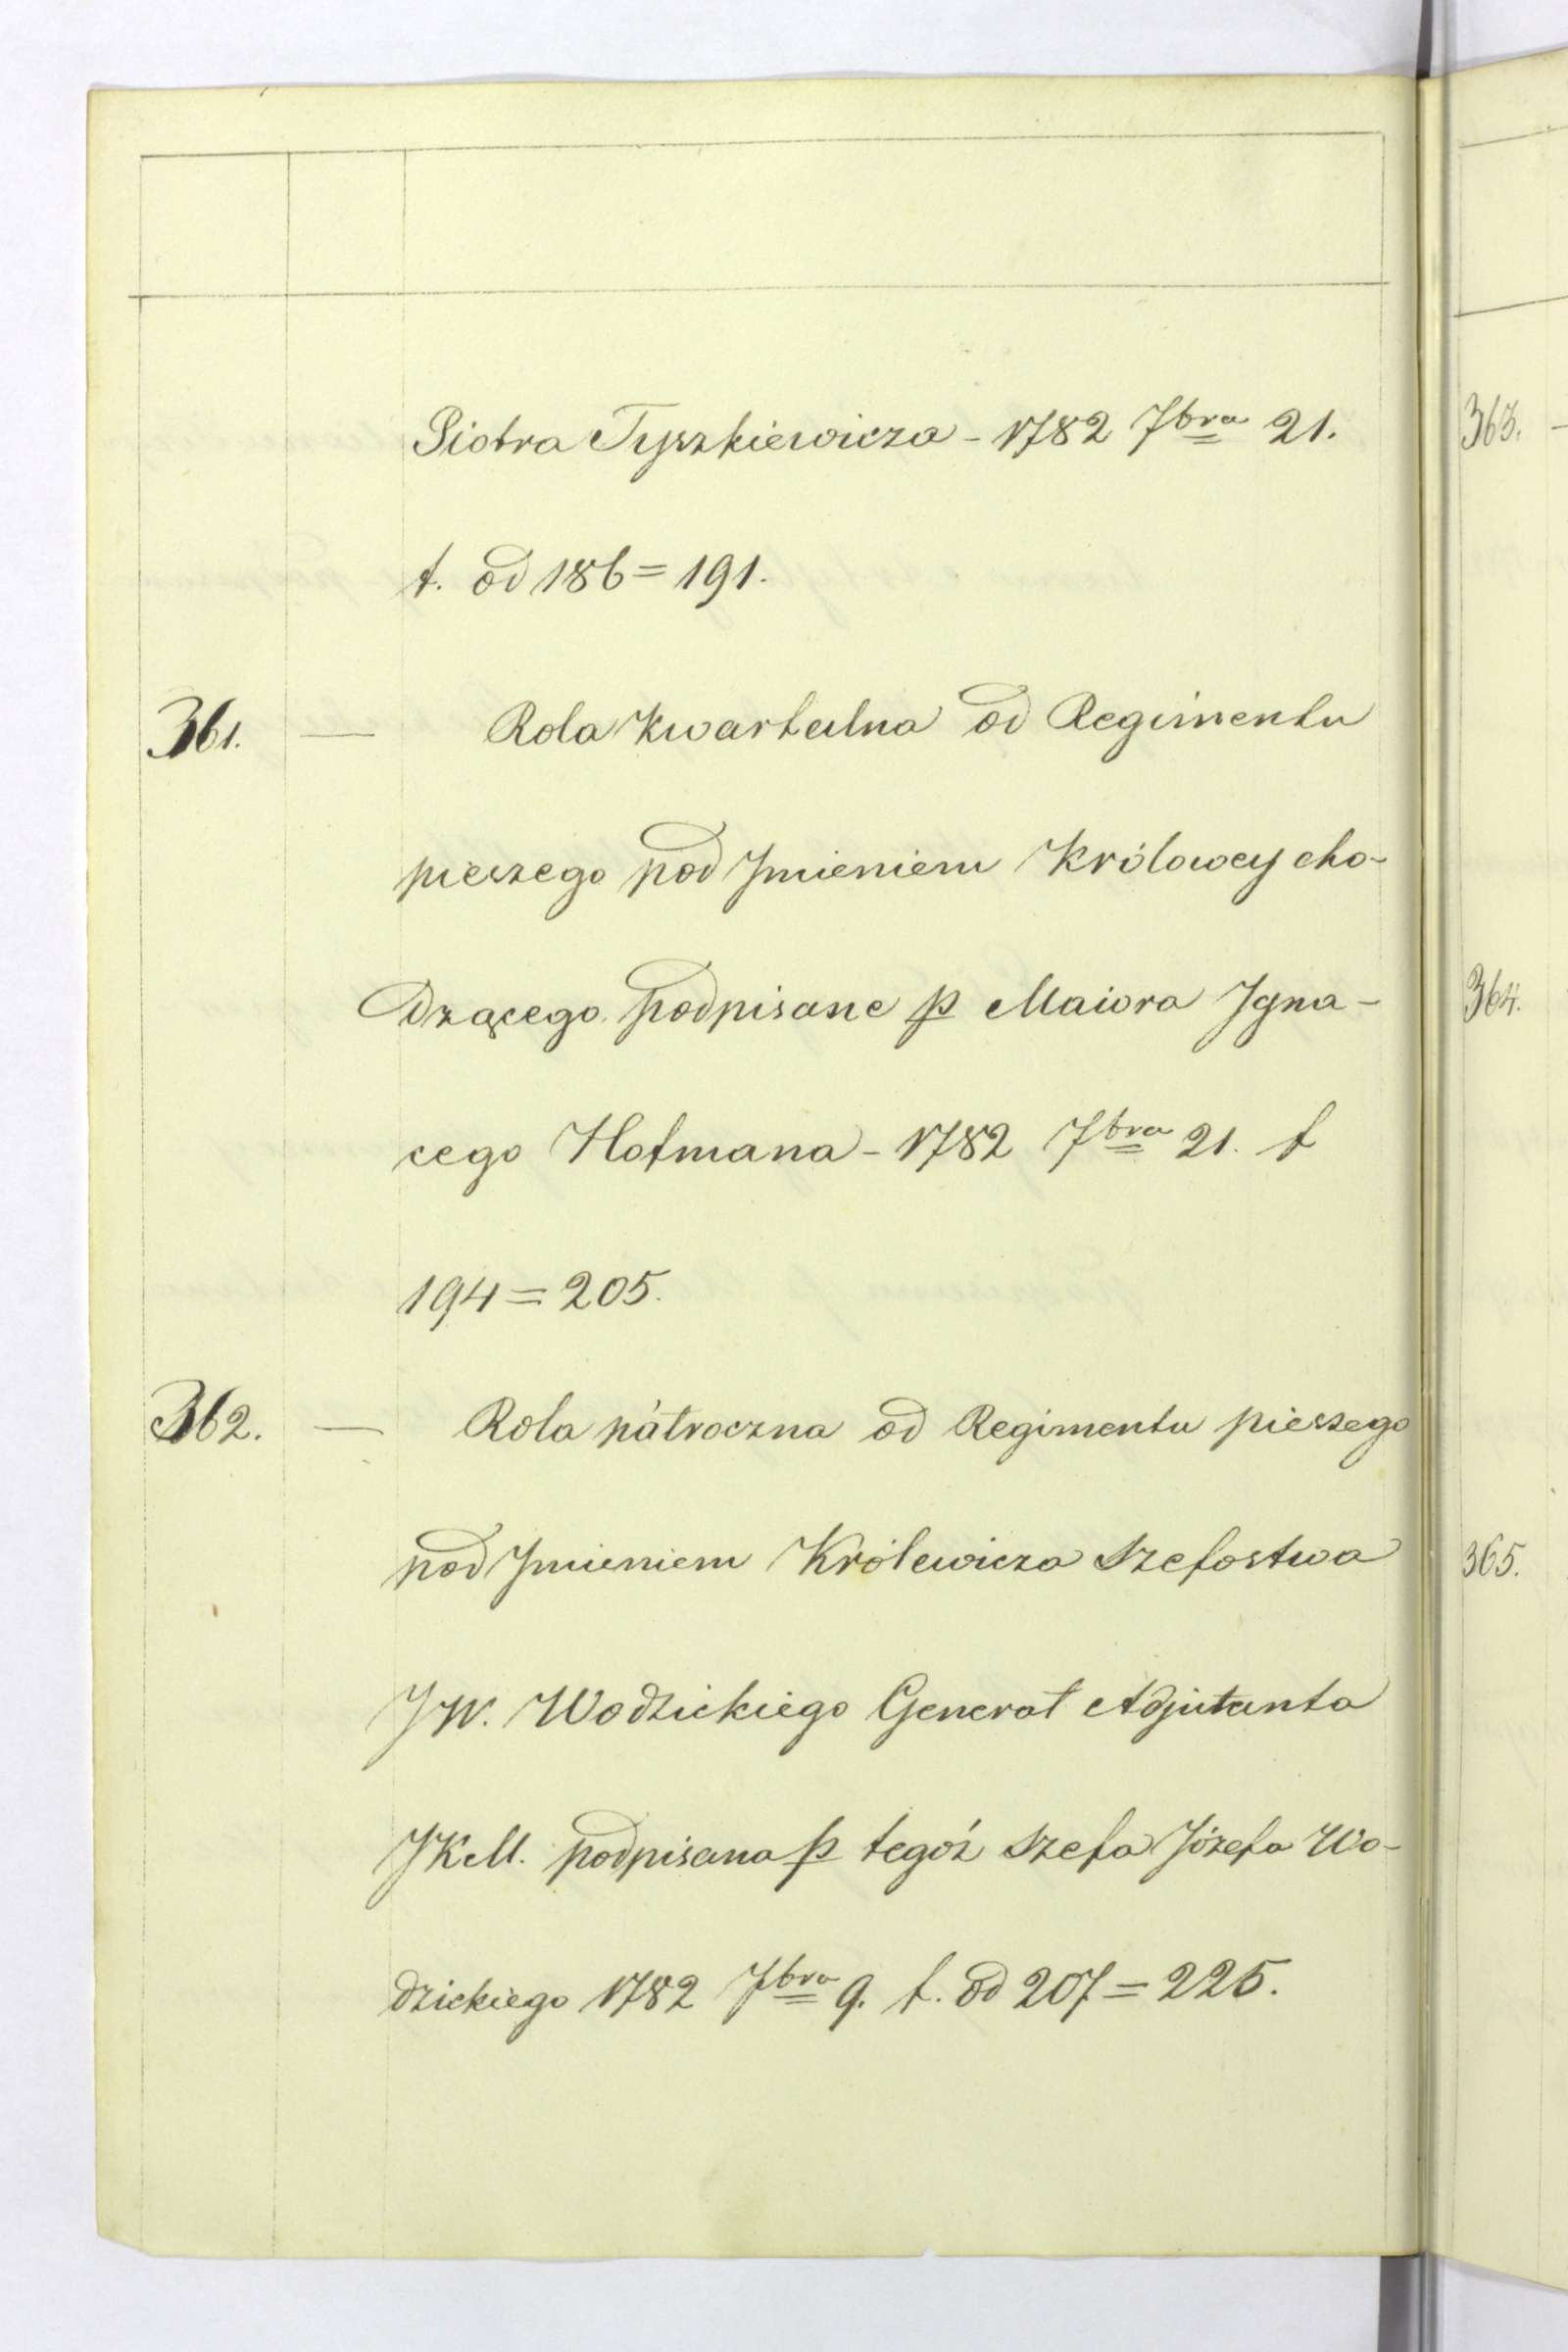 Piotra Tyszkiewicza - 1782 7bra 21.
f. od 186 = 191.
361. — Rola Kwartalna od Regimentu
pieszego pod Jmieniem Królowey cho-
dzącego podpisane p Maiora Jgna-
cego Hofmana - 1782 7bra 21. f
194 = 205.
362. — Rola półroczna od Regimentu pieszego
pod Jmieniem Królewicza Szefostwa
JW. Wodzickiego Generał Adjutanta
JKM. podpisana p tegoż Szefa Józefa Wo-
dzickiego 1782 7bra 9. f. od 207 = 225.
363. -
364.
365.